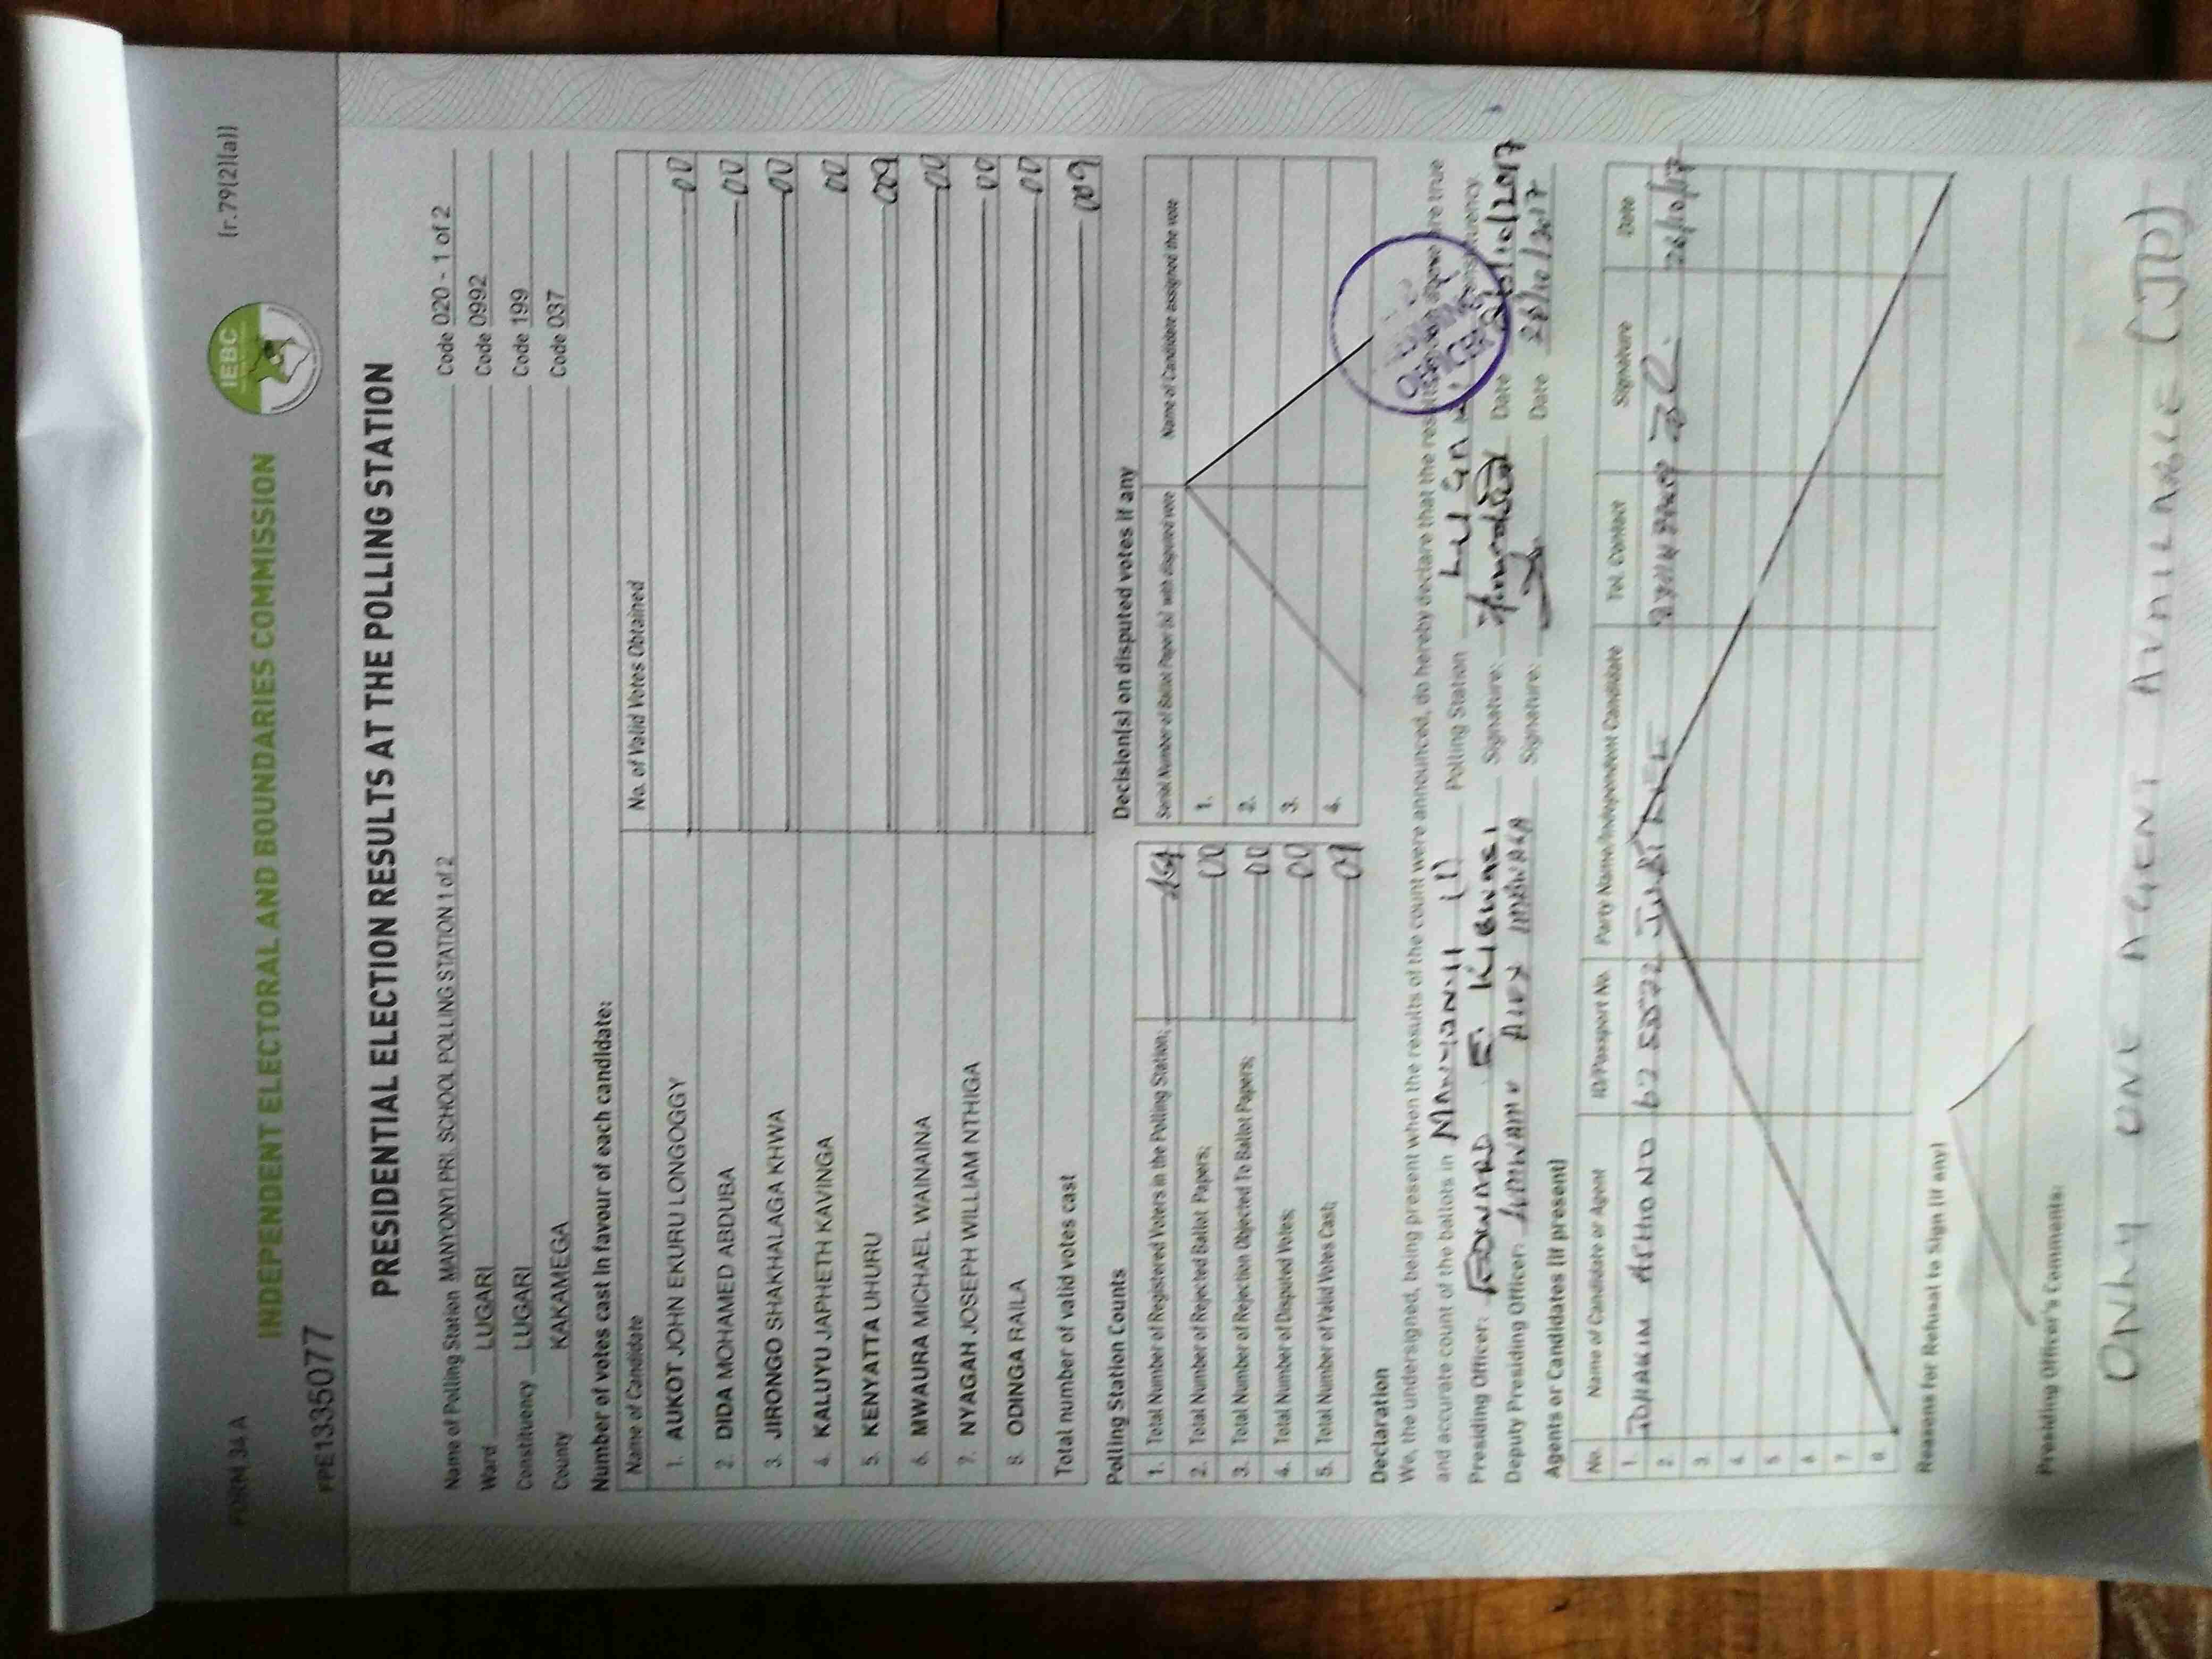 FORM 34A
(r.79(2)(a))
IEBC
INDEPENDENT ELECTORAL AND BOUNDARIES COMMISSION
PE1335077
PRESIDENTIAL ELECTION RESULTS AT THE POLLING STATION
Name of Polling Station MANYONYI PRI. SCHOOL POLLING STATION 1 of 2 Code 020 - 1 of 2
Ward LUGARI Code 0992
Constituency LUGARI Code 199
County KAKAMEGA Code 037
Number of votes cast in favour of each candidate:
Name of Candidate No. of Valid Votes Obtained
1. AUKOT JOHN EKURU LONGOGGY 00
2. DIDA MOHAMED ABDUBA 00
3. JIRONGO SHAKHALAGA KHWA 00
4. KALUYU JAPHETH KAVINGA 00
5. KENYATTA UHURU 009
6. MWAURA MICHAEL WAINAINA 00
7. NYAGAH JOSEPH WILLIAM NTHIGA 00
8. ODINGA RAILA 00
Total number of valid votes cast 009
Polling Station Counts
1. Total Number of Registered Voters in the Polling Station;
2. Total Number of Rejected Ballot Papers; 00
3. Total Number of Rejection Objected To Ballot Papers; 00
4. Total Number of Disputed Votes; 00
5. Total Number of Valid Votes Cast; 09
Decision(s) on disputed votes if any
Serial Number of Ballot Paper (s) with disputed vote Name of Candidate assigned the vote
1.
2.
3.
4.
Declaration
We, the undersigned, being present when the results of the count were announced, do hereby declare that the results are true
and accurate count of the ballots in Polling Station
Presiding Officer: EDWARD E. KIBWASI Signature: Date 26/10/2017
Deputy Presiding Officer: ALEX Signature: Date 26/10/2017
OFFICER
Agents or Candidates (if present)
No. Name of Candidate or Agent ID/Passport No. Party Name/Independent Candidate Tel. Contact Signature Date
1. JUBILEE 26/10/17
2.
3.
4.
5.
6.
7.
8.
Reasons for Refusal to Sign (if any)
Presiding Officer's Comments:
ONLY ONE AGENT AVAILABLE (JP)